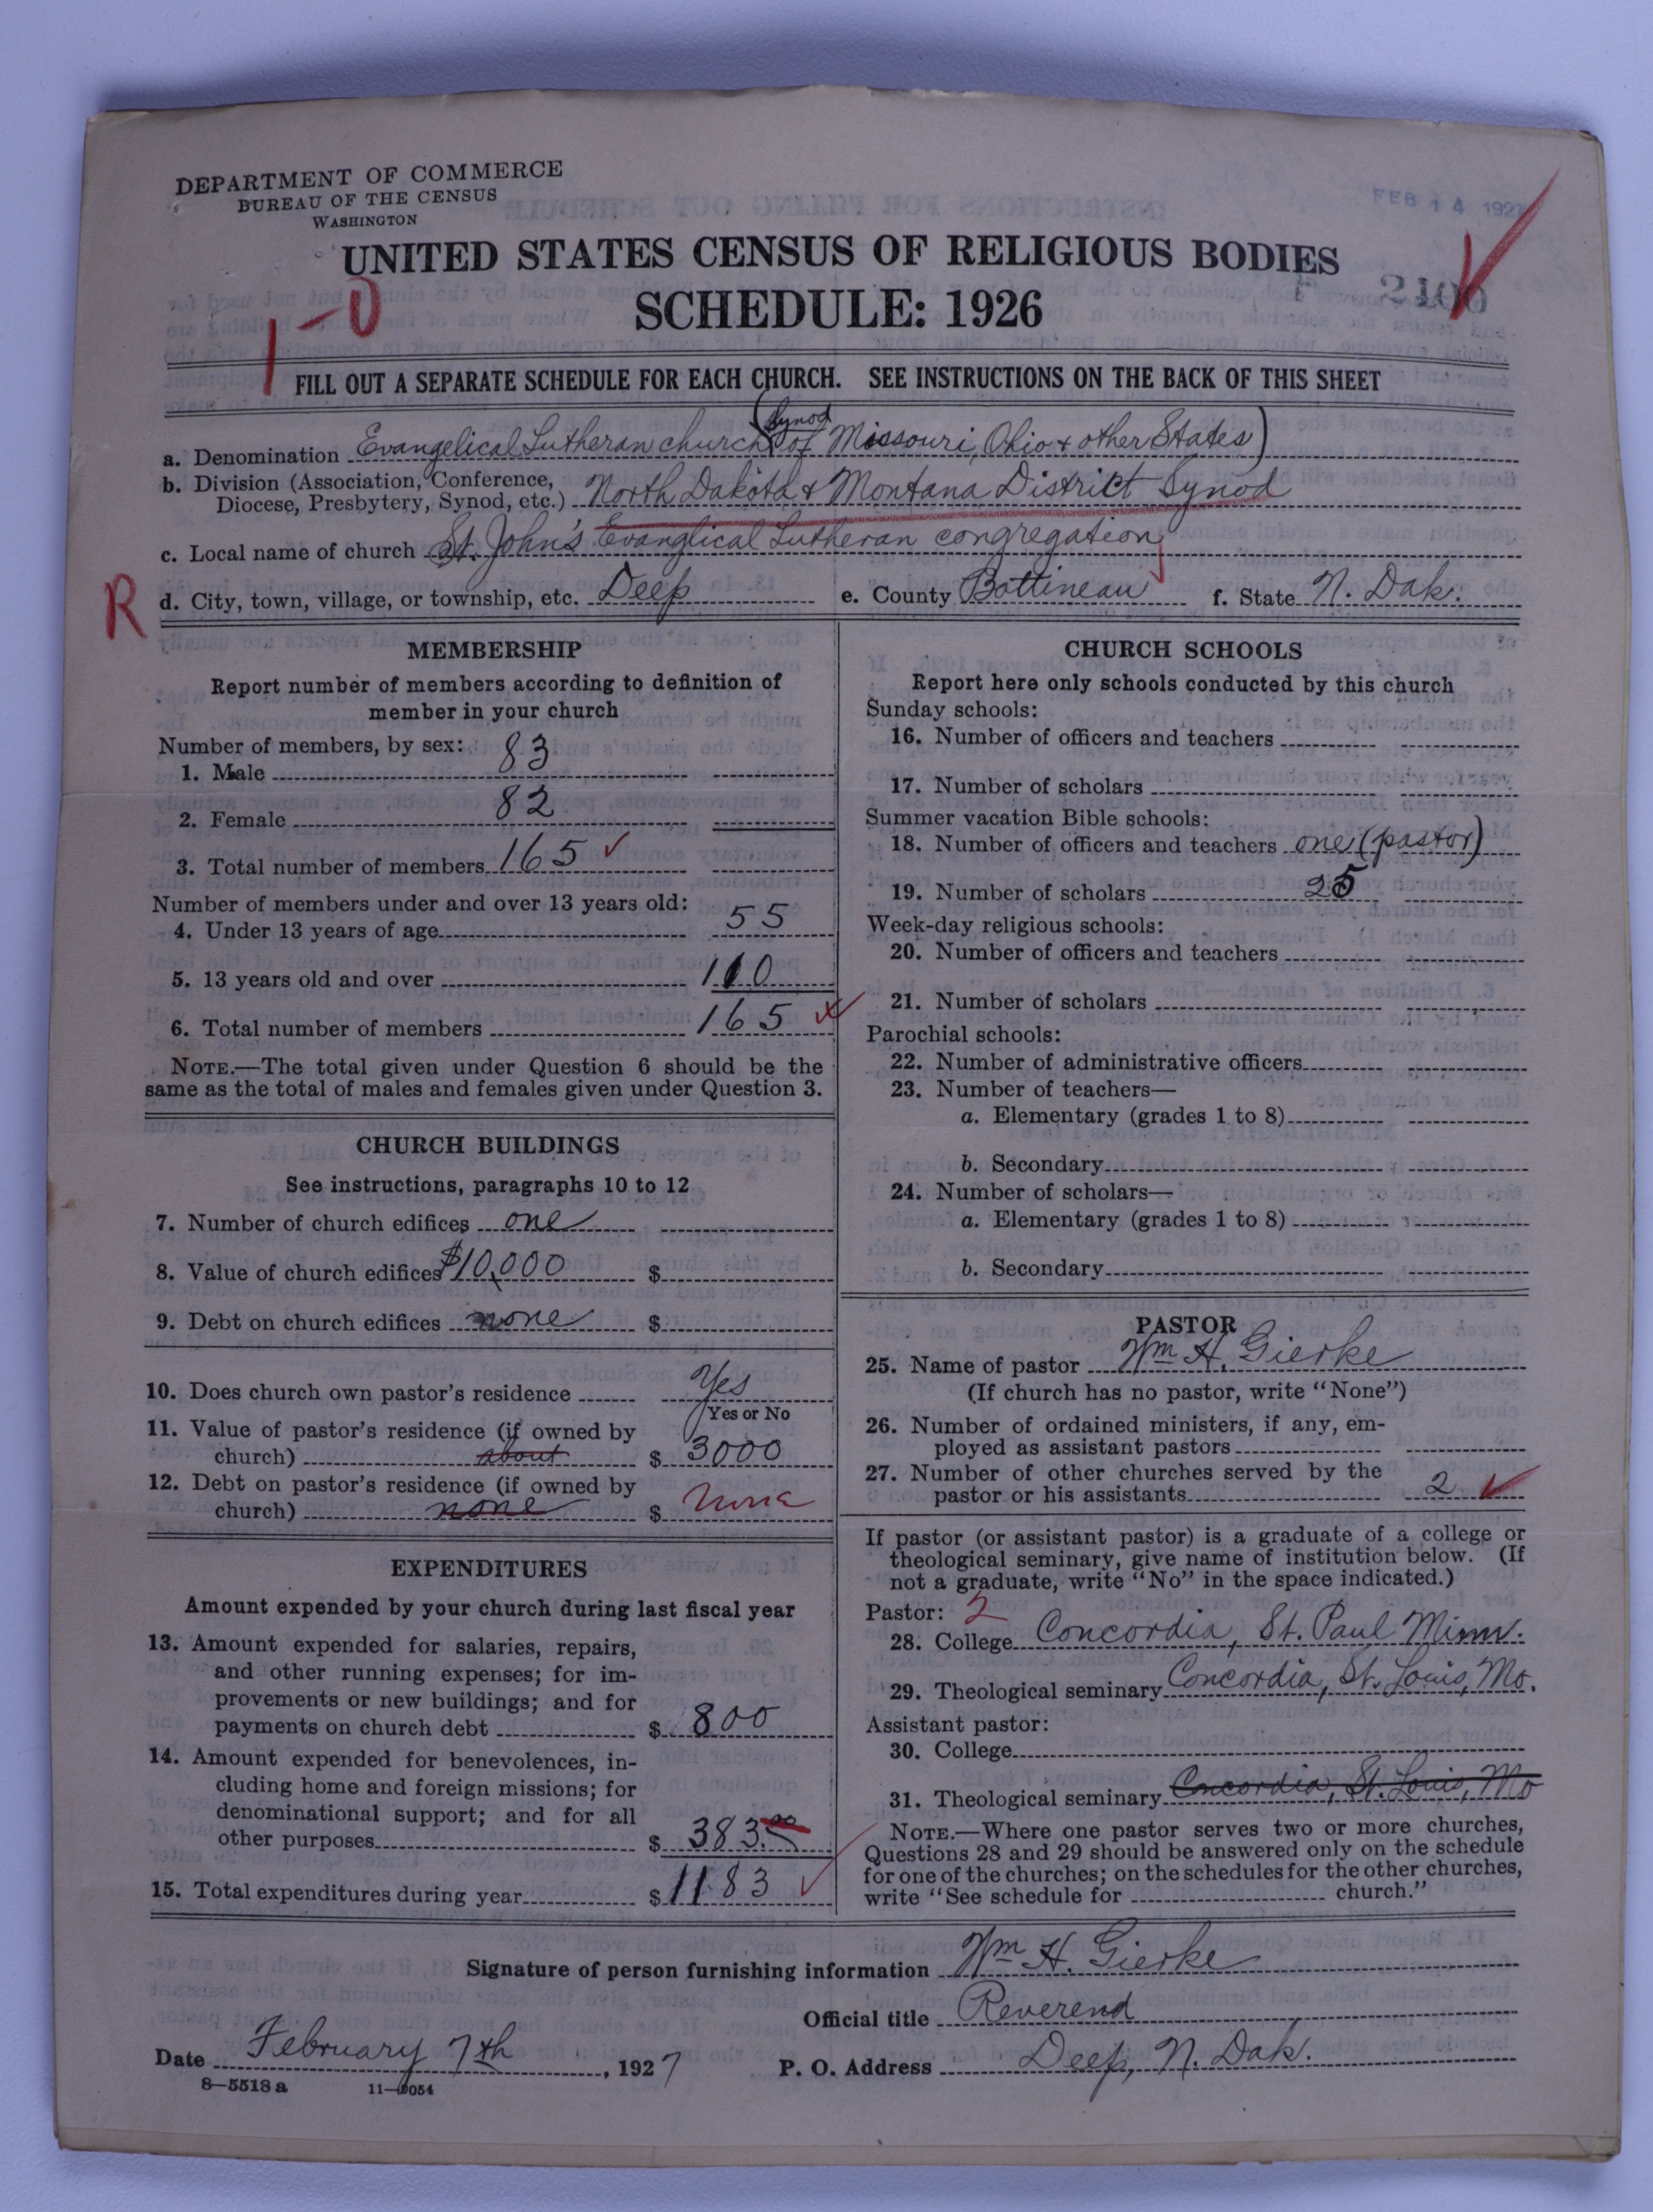 DEPARTMENT OF COMMERCE
BUREAU OF THE CENSUS
WASHINGTON
FEB 14 1927
UNITED STATES CENSUS OF RELIGIOUS BODIES
SCHEDULE: 1926
1-0
FILL OUT A SEPARATE SCHEDULE FOR EACH CHURCH. SEE INSTRUCTIONS ON THE BACK OF THIS SHEET
a. Denomination Evangelical Lutheran church (Synod of Missouri, Ohio & other States)
b. Division (Association, Conference,
Diocese, Presbytery, Synod, etc.) North Dakota & Montana District Synod
c. Local name of church St. John's Evanglical Lutheran congregation
R d. City, town, village, or township, etc. Deep e. County Bottineau f. State N. Dak.
MEMBERSHIP
Report number of members according to definition of
member in your church
Number of members, by sex:
1. Male 83
2. Female 82
3. Total number of members 165
Number of members under and over 13 years old:
4. Under 13 years of age 55
5. 13 years old and over 110
6. Total number of members 165
NOTE.—The total given under Question 6 should be the
same as the total of males and females given under Question 3.
CHURCH BUILDINGS
See instructions, paragraphs 10 to 12
7. Number of church edifices one
8. Value of church edifices $10,000 $
9. Debt on church edifices none $
10. Does church own pastor's residence Yes
Yes or No
11. Value of pastor's residence (if owned by
church) about $ 3000
12. Debt on pastor's residence (if owned by
church) none $ None
EXPENDITURES
Amount expended by your church during last fiscal year
13. Amount expended for salaries, repairs,
and other running expenses; for im-
provements or new buildings; and for
payments on church debt $ 800
14. Amount expended for benevolences, in-
cluding home and foreign missions; for
denominational support; and for all
other purposes $ 383.00
15. Total expenditures during year $ 1183
CHURCH SCHOOLS
Report here only schools conducted by this church
Sunday schools:
16. Number of officers and teachers
17. Number of scholars
Summer vacation Bible schools:
18. Number of officers and teachers one (pastor)
19. Number of scholars 25
Week-day religious schools:
20. Number of officers and teachers
21. Number of scholars
Parochial schools:
22. Number of administrative officers
23. Number of teachers—
a. Elementary (grades 1 to 8)
b. Secondary
24. Number of scholars—
a. Elementary (grades 1 to 8)
b. Secondary
PASTOR
25. Name of pastor Wm H. Gierke
(If church has no pastor, write "None")
26. Number of ordained ministers, if any, em-
ployed as assistant pastors
27. Number of other churches served by the
pastor or his assistants 2
If pastor (or assistant pastor) is a graduate of a college or
theological seminary, give name of institution below. (If
not a graduate, write "No" in the space indicated.)
Pastor: 2
28. College Concordia, St. Paul Minn.
29. Theological seminary Concordia, St. Louis, Mo.
Assistant pastor:
30. College
31. Theological seminary Concordia, St. Louis, Mo
NOTE.—Where one pastor serves two or more churches,
Questions 28 and 29 should be answered only on the schedule
for one of the churches; on the schedules for the other churches,
write "See schedule for church."
Signature of person furnishing information Wm H. Gierke
Official title Reverend
Date February 7th, 1927 P. O. Address Deep, N. Dak.
8-5518 a 11-9054